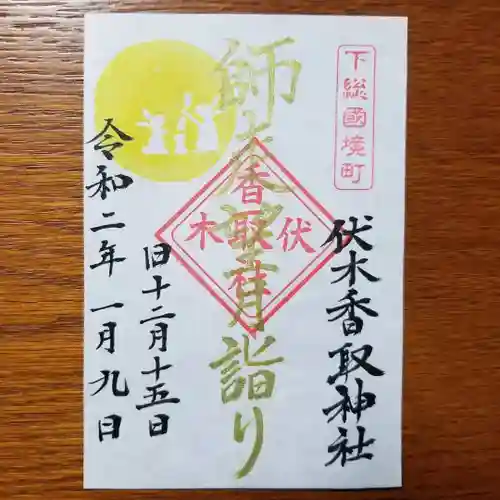 下総國境町
伏木香取神社
師走望月詣り
伏木
香取社
旧十二月十五日
令和二年一月九日